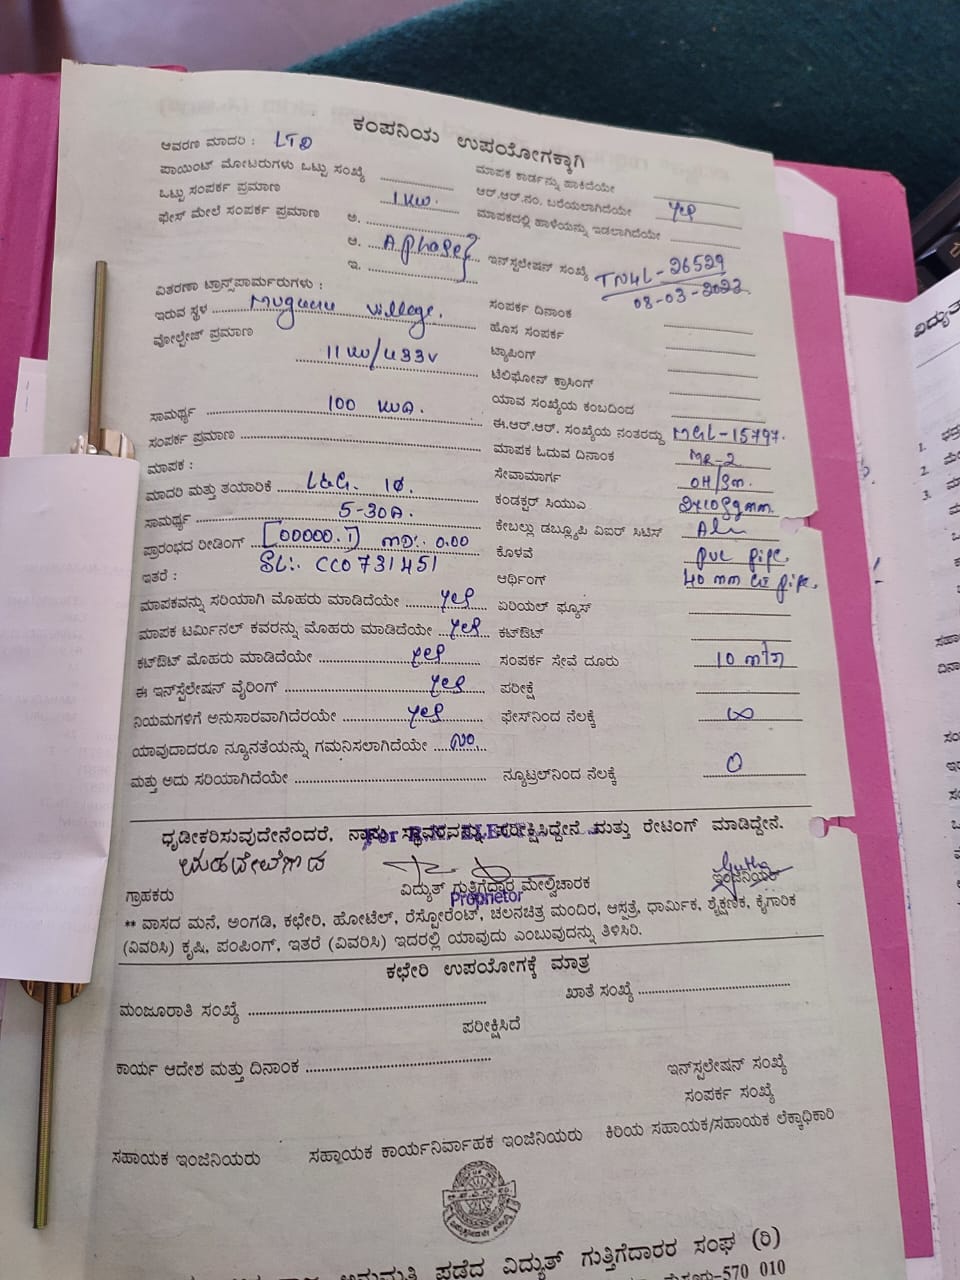 ಕಂಪನಿಯ ಉಪಯೋಗಕ್ಕಾಗಿ
ಆವರಣ ಮಾದರಿ : LTD
ಪಾಯಿಂಟ್ ಮೋಟರುಗಳು ಒಟ್ಟು ಸಂಖ್ಯೆ
ಮಾಪಕ ಕಾರ್ಡನ್ನು ಹಾಕಿದೆಯೇ
ಒಟ್ಟು ಸಂಪರ್ಕ ಪ್ರಮಾಣ 1 KW.
ಆರ್.ಆರ್.ನಂ. ಬರೆಯಲಾಗಿದೆಯೇ yes
ಫೇಸ್ ಮೇಲೆ ಸಂಪರ್ಕ ಪ್ರಮಾಣ ಅ.
ಮಾಪಕದಲ್ಲಿ ಹಾಳೆಯನ್ನು ಇಡಲಾಗಿದೆಯೇ
ಆ. A phase
ಇ.
ಇನ್‌ಸ್ಟಲೇಷನ್ ಸಂಖ್ಯೆ TN4L-26529
08-03-2022
ವಿತರಣಾ ಟ್ರಾನ್ಸ್‌ಫಾರ್ಮರುಗಳು :
ಇರುವ ಸ್ಥಳ village.
ಸಂಪರ್ಕ ದಿನಾಂಕ
ವೋಲ್ಟೇಜ್ ಪ್ರಮಾಣ 11 KV/433V
ಹೊಸ ಸಂಪರ್ಕ
ಟ್ಯಾಪಿಂಗ್
ಟೆಲಿಫೋನ್ ಕ್ರಾಸಿಂಗ್
ಸಾಮರ್ಥ್ಯ 100 KVA.
ಯಾವ ಸಂಖ್ಯೆಯ ಕಂಬದಿಂದ
ಸಂಪರ್ಕ ಪ್ರಮಾಣ
ಈ.ಆರ್.ಆರ್. ಸಂಖ್ಯೆಯ ನಂತರದ್ದು MGL-15797.
ಮಾಪಕ :
ಮಾಪಕ ಓದುವ ದಿನಾಂಕ MR-2
ಮಾದರಿ ಮತ್ತು ತಯಾರಿಕೆ L&G. 1Ø.
ಸೇವಾಮಾರ್ಗ OH/Sm.
ಸಾಮರ್ಥ್ಯ 5-30A.
ಕಂಡಕ್ಟರ್ ಸಿಯುಎ 2x10Sqmm.
ಪ್ರಾರಂಭದ ರೀಡಿಂಗ್ [00000.1] MD:. 0.00
ಕೇಬಲ್ಲು ಡಬ್ಲ್ಯೂಪಿ ವಿಐರ್ ಸಿಟಿಸ್ Alu
ಇತರೆ : SL:. CC0731451
ಕೊಳವೆ pvc pipe.
ಆರ್ಥಿಂಗ್ 40 mm GI pipe.
ಮಾಪಕವನ್ನು ಸರಿಯಾಗಿ ಮೊಹರು ಮಾಡಿದೆಯೇ yes
ಏರಿಯಲ್ ಫ್ಯೂಸ್
ಮಾಪಕ ಟರ್ಮಿನಲ್ ಕವರನ್ನು ಮೊಹರು ಮಾಡಿದೆಯೇ yes
ಕಟ್‌ಔಟ್
ಕಟ್‌ಔಟ್ ಮೊಹರು ಮಾಡಿದೆಯೇ yes
ಸಂಪರ್ಕ ಸೇವೆ ದೂರು 10 mtr
ಈ ಇನ್‌ಸ್ಟಲೇಷನ್ ವೈರಿಂಗ್ yes
ಪರೀಕ್ಷೆ
ನಿಯಮಗಳಿಗೆ ಅನುಸಾರವಾಗಿದೆರಯೇ yes
ಫೇಸ್‌ನಿಂದ ನೆಲಕ್ಕೆ ∞
ಯಾವುದಾದರೂ ನ್ಯೂನತೆಯನ್ನು ಗಮನಿಸಲಾಗಿದೆಯೇ No
ಮತ್ತು ಅದು ಸರಿಯಾಗಿದೆಯೇ
ನ್ಯೂಟ್ರಲ್‌ನಿಂದ ನೆಲಕ್ಕೆ 0
ಧೃಡೀಕರಿಸುವುದೇನೆಂದರೆ, ನಾನು ಸ್ಥಾವರವನ್ನು ಪರೀಕ್ಷಿಸಿದ್ದೇನೆ ಮತ್ತು ರೇಟಿಂಗ್ ಮಾಡಿದ್ದೇನೆ.
For
ಗ್ರಾಹಕರು
ವಿದ್ಯುತ್ ಗುತ್ತಿಗೆದಾರ ಮೇಲ್ವಿಚಾರಕ
ಇಂಜಿನಿಯರ್
Proprietor
** ವಾಸದ ಮನೆ, ಅಂಗಡಿ, ಕಛೇರಿ, ಹೋಟೆಲ್, ರೆಸ್ಟೋರೆಂಟ್, ಚಲನಚಿತ್ರ ಮಂದಿರ, ಆಸ್ಪತ್ರೆ, ಧಾರ್ಮಿಕ, ಶೈಕ್ಷಣಿಕ, ಕೈಗಾರಿಕ
(ವಿವರಿಸಿ) ಕೃಷಿ, ಪಂಪಿಂಗ್, ಇತರೆ (ವಿವರಿಸಿ) ಇದರಲ್ಲಿ ಯಾವುದು ಎಂಬುವುದನ್ನು ತಿಳಿಸಿರಿ.
ಕಛೇರಿ ಉಪಯೋಗಕ್ಕೆ ಮಾತ್ರ
ಮಂಜೂರಾತಿ ಸಂಖ್ಯೆ
ಖಾತೆ ಸಂಖ್ಯೆ
ಪರೀಕ್ಷಿಸಿದೆ
ಕಾರ್ಯ ಆದೇಶ ಮತ್ತು ದಿನಾಂಕ
ಇನ್‌ಸ್ಟಲೇಷನ್ ಸಂಖ್ಯೆ
ಸಂಪರ್ಕ ಸಂಖ್ಯೆ
ಸಹಾಯಕ ಇಂಜಿನಿಯರು
ಸಹಾಯಕ ಕಾರ್ಯನಿರ್ವಾಹಕ ಇಂಜಿನಿಯರು
ಕಿರಿಯ ಸಹಾಯಕ/ಸಹಾಯಕ ಲೆಕ್ಕಾಧಿಕಾರಿ
ಅನುಮತಿ ಪಡೆದ ವಿದ್ಯುತ್ ಗುತ್ತಿಗೆದಾರರ ಸಂಘ (ರಿ)
ಮೈಸೂರು-570 010